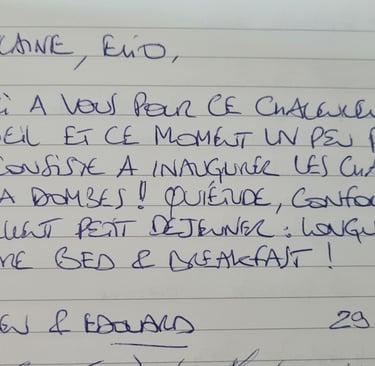 LAINE, ELIO,
I A VOUS POUR CE CHALEUREU
EIL ET CE MOMENT UN PEU
CONSISTE A INAUGURER LES CHA
A DOMBES !! QUIÉTUDE, CONFO
LLENT PETIT DÉJEUNER : LONGU
RE BED & BREAKFAST !
& EDOUARD 29